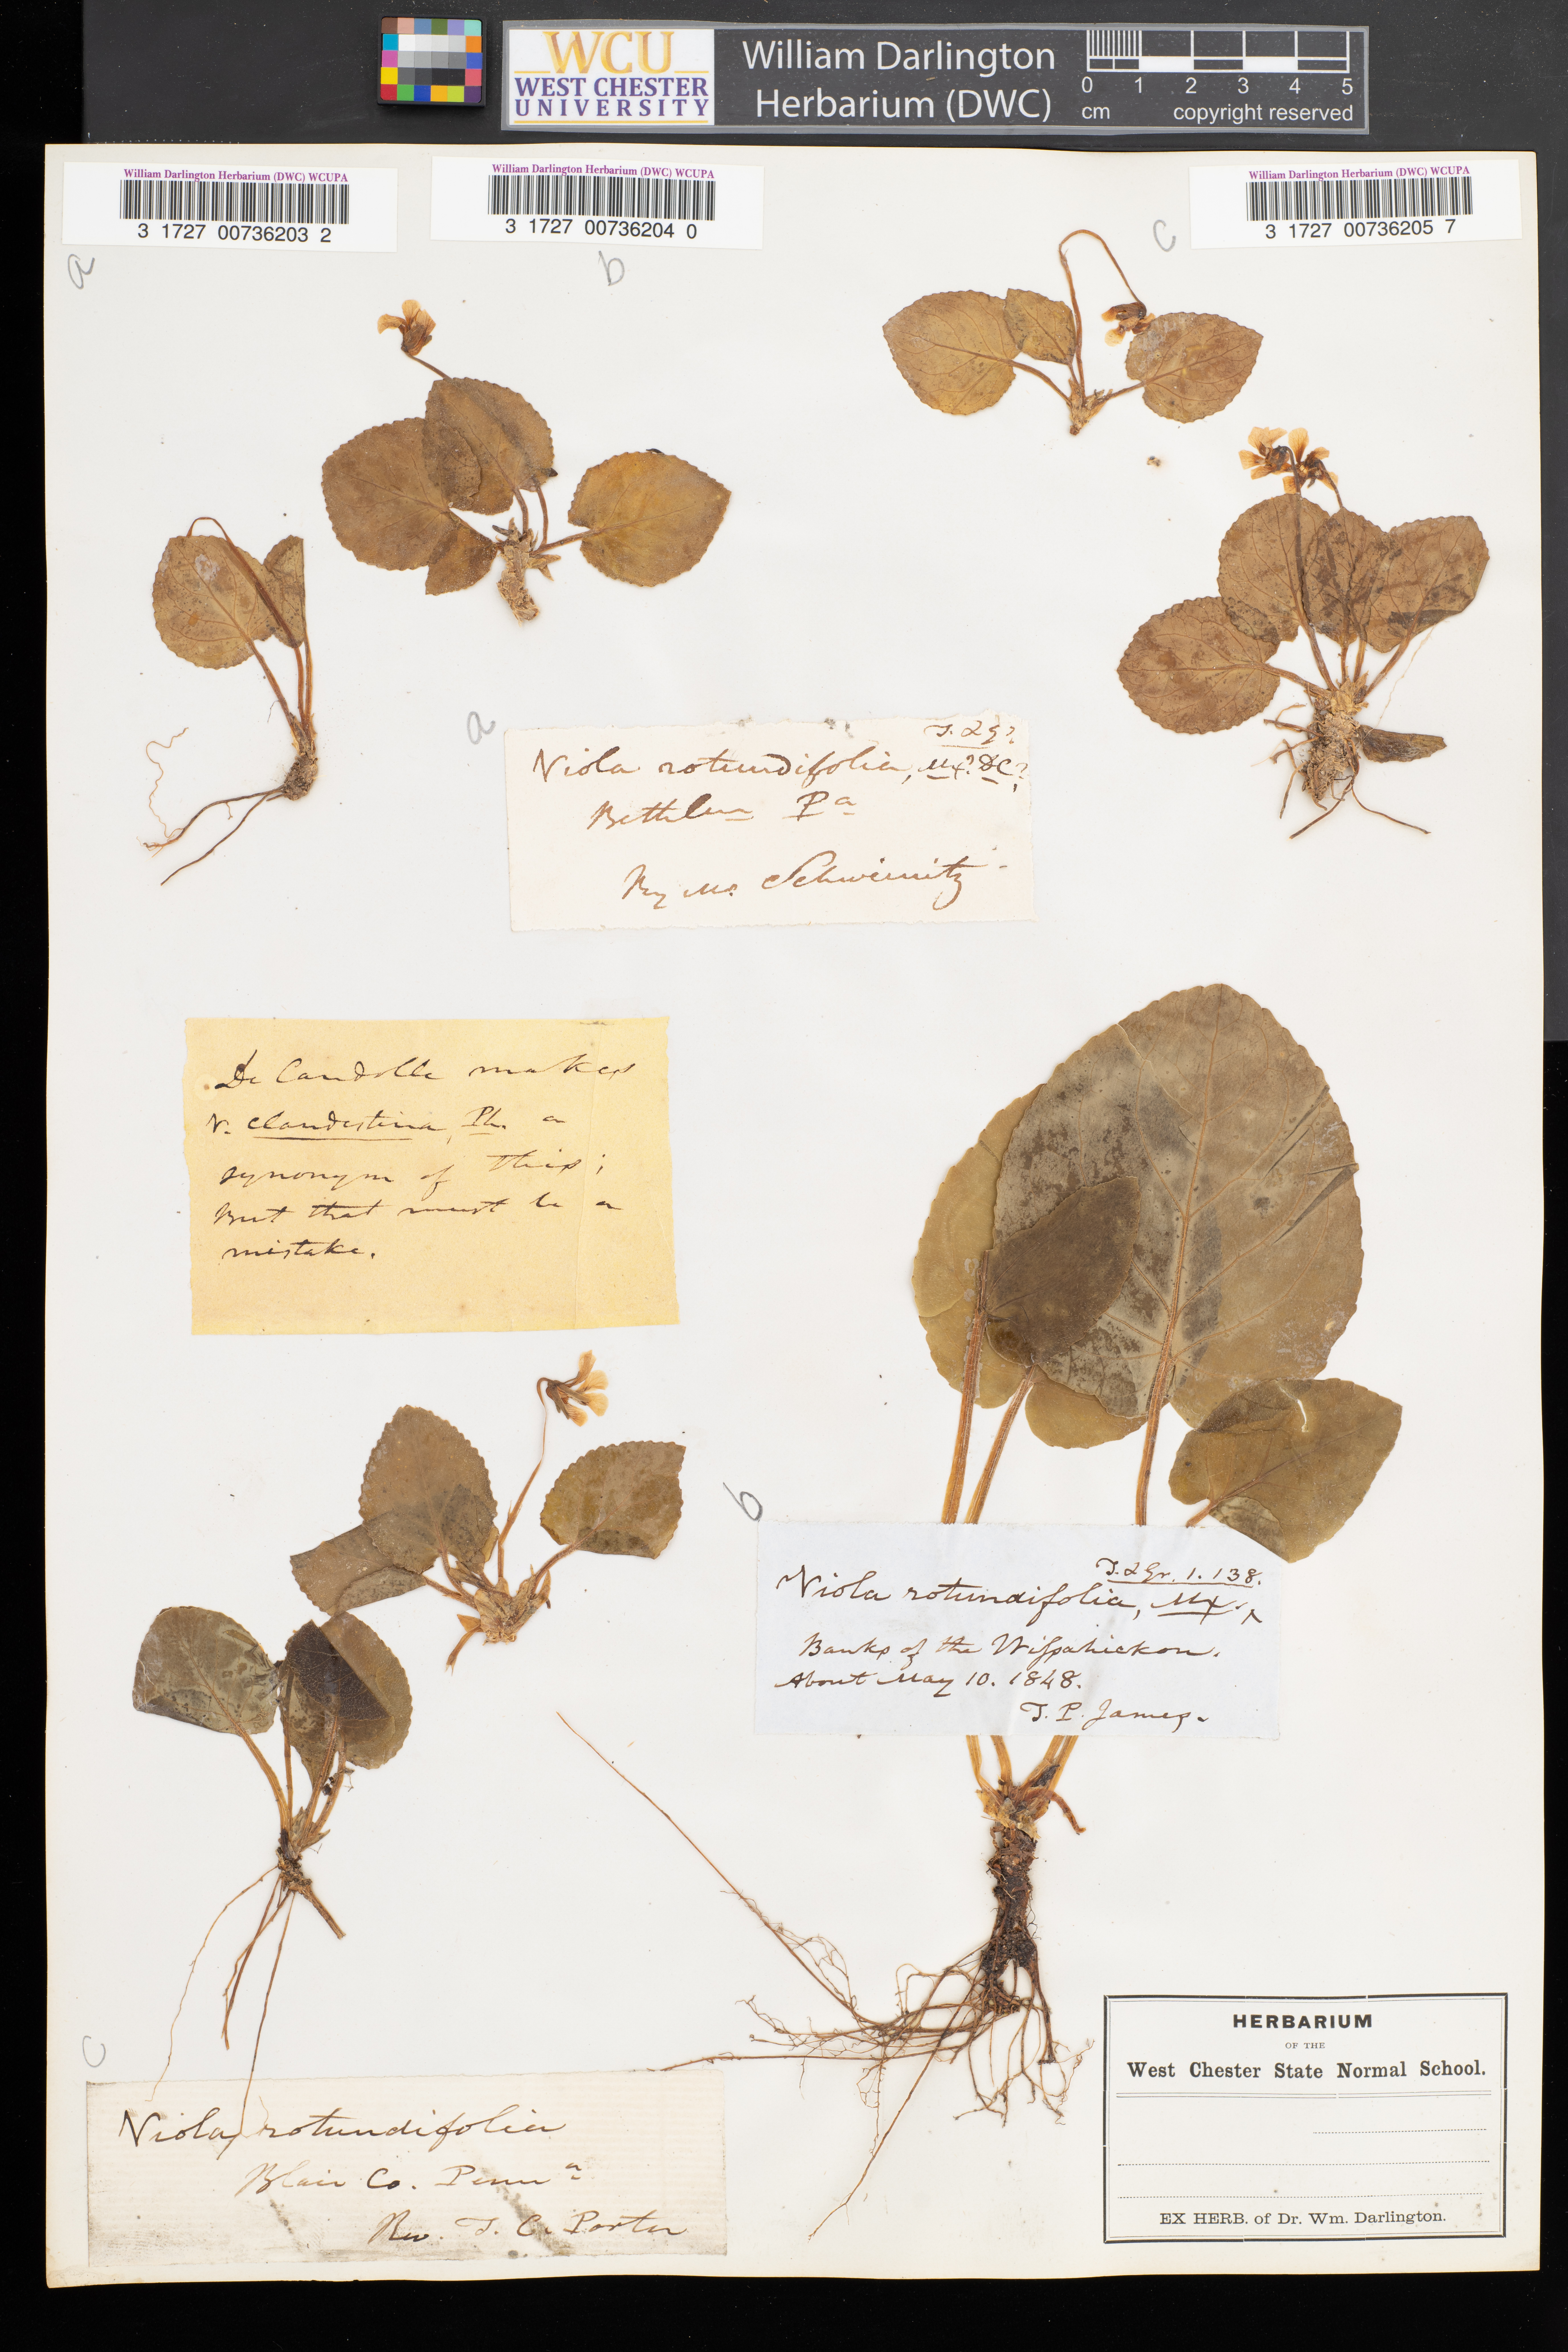 WCU
WEST CHESTER
UNIVERSITY
William Darlington
Herbarium (DWC)
0 1 2 3 4 5
cm copyright reserved
William Darlington Herbarium (DWC) WCUPA
3 1727 00736203 2
William Darlington Herbarium (DWC) WCUPA
3 1727 00736204 0
William Darlington Herbarium (DWC) WCUPA
3 1727 00736205 7
a
b
c
a
T. & G?
Viola rotundifolia, Mx? DC?
Bethlem Pa
By Mr. Schweinitz
De Candolle makes
V. clandestina, Ph. a
synonym of this;
But that must be a
mistake.
b
T. & Gr. 1. 138.
Viola rotundifolia, Mx.
Banks of the Wissahickon.
About May 10. 1848.
T. P. James.
c
Viola, rotundifolia
Blair Co. Penna
Rev. T. C. Porter
HERBARIUM
OF THE
West Chester State Normal School.
EX HERB. of Dr. Wm. Darlington.